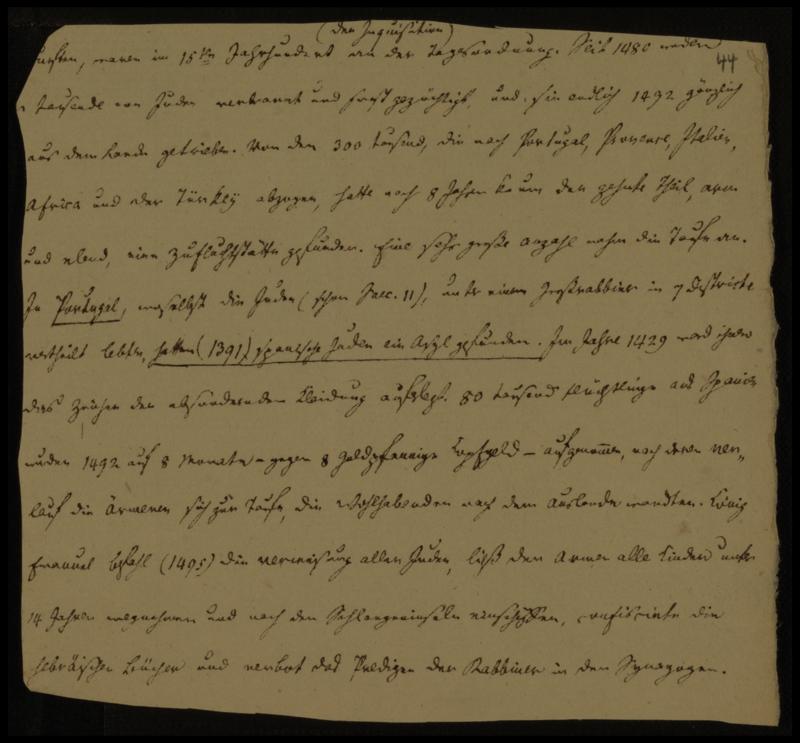 (der Inquisition)
44
waren im 15ten Jahrhundert an der Tagesordnung. Seit 1480 wurden
Tausende von Juden verbrannt und sonst gezüchtigt, und sie endlich 1492 gänzlich
aus dem Lande getrieben. Von den 300 tausend, die nach Portugal, Provence, Italien,
Africa und der Türkey abzogen, hatte nach 8 Jahren kaum der zehnte Theil, arm
und elend, eine Zufluchtstätte gefunden. Eine sehr große Anzahl nahm die Taufe an.
In Portugal, woselbst die Juden (schon Saec. 11), unter einem Großrabbiner in 7 Districte
vertheilt lebten, hatten (1391) spanische Juden ein Asyl gefunden. Im Jahre 1429 ward ihnen
das Zeichen der absondernden Kleidung auferlegt. 80 tausend Flüchtlinge aus Spanien
wurden 1492 auf 8 Monate – gegen 8 Goldpfennige Kopfgeld – aufgenommen, nach deren Ver„
lauf die Ärmeren sich zur Taufe, die Wohlhabenden nach dem Auslande wandten. König
Emanuel befahl (1495) die Verweisung aller Juden, ließ den Armen alle Kinder unter
14 Jahren wegnehmen und nach den Schlangeninseln einschiffen, confiscirte die
hebräischen Bücher und verbot das Predigen der Rabbiner in den Synagogen.